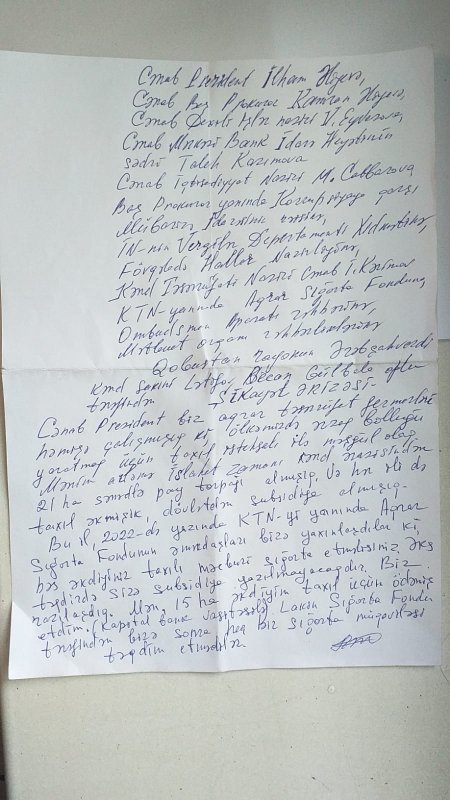 Cənab Prezident İlham Əliyevə,
Cənab Baş Prokuror Kamran Əliyevə,
Cənab Daxili İşlər naziri V. Eyvazova,
Cənab Mərkəzi Bank İdarə Heyətinin
sədri Taleh Kazımova
Cənab İqtisadiyyat Naziri M. Cabbarova
Baş Prokuror yanında Korrupsiyaya qarşı
Mübarizə İdarəsinin rəisinə,
İN-nin Vergilər Departamenti Xidmətinə,
Fövqəladə Hallar Nazirliyinə,
Kənd Təsərrüfatı Naziri Cənab İ. Kərimova
KTN-yanında Aqrar Sığorta Fonduna
Ombudsman Aparatı rəhbərinə,
Mətbuat orqanı rəhbərlərinə,
Qobustan rayonun Ərəbşahverdi
kənd sakini Lətifov Bəcan Gülbala oğlu
tərəfindən
-ŞİKAYƏT ƏRİZƏSİ-
Cənab Prezident biz aqrar təsərrüfat fermerləri
həmişə çalışmışıq ki, ölkəmizdə ərzaq bolluğu
yaratmaq üçün taxıl istehsalı ilə məşğul olaq.
Mənim ailəmə İslahat zamanı kənd ərazisindən
21 ha sahədə pay torpağı almışıq. Və hər ili də
taxıl əkmişik, dövlətdən subsidiya almışıq.
Bu il, 2022-də yazında KTN-yi yanında Aqrar
Sığorta Fondunun əməkdaşları bizə yaxınlaşdılar ki,
bəs əkdiyiniz taxılı məcburi sığorta etməlisiniz, əks
təqdirdə sizə subsidiya yazılmayacaqdır. Biz
razılaşdıq. Mən, 15 ha əkdiyim taxıl üçün ödəniş
etdim. (Kapital bank vasitəsilə) Lakin Sığorta Fondu
tərəfindən bizə sonra heç bir sığorta müqaviləsi
təqdim etmədilər.